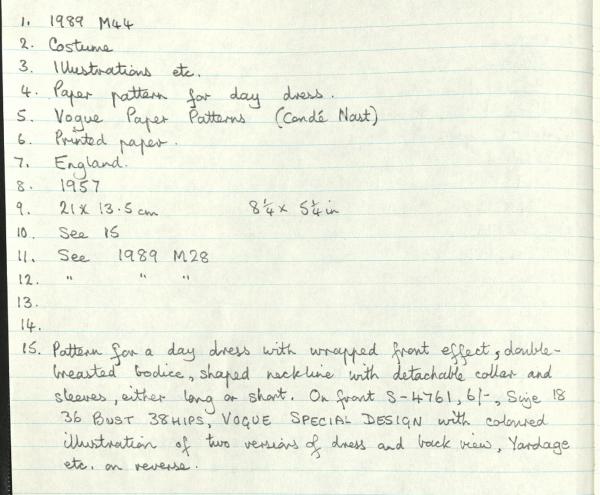 1. 1989 M44
2. Costume
3. Illustrations etc.
4. Paper pattern for day dress.
5. Vogue Paper Patterns (Condé Nast)
6. Printed paper.
7. England.
8. 1957
9. 21 x 13.5 cm 8 1/4 x 5 1/4 in
10. See 15
11. See 1989 M28
12. " " "
13.
14.
15. Pattern for a day dress with wrapped front effect, double-
breasted bodice, shaped neckline with detachable collar and
sleeves, either long or short. On front S-4761, 6/-, Size 18
36 BUST 38 HIPS, VOGUE SPECIAL DESIGN with coloured
illustration of two versions of dress and back view, Yardage
etc. on reverse.